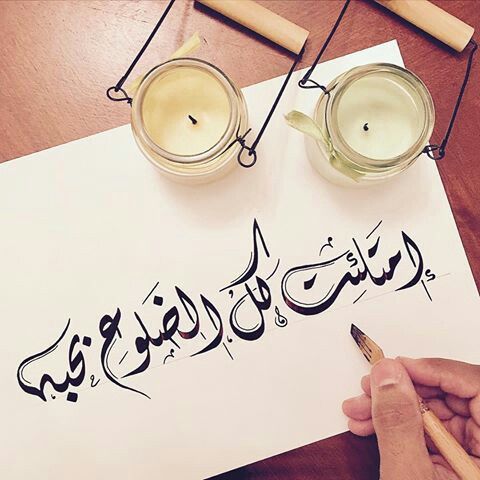 إمتَلئِت كلُ الضَلوع بحبه